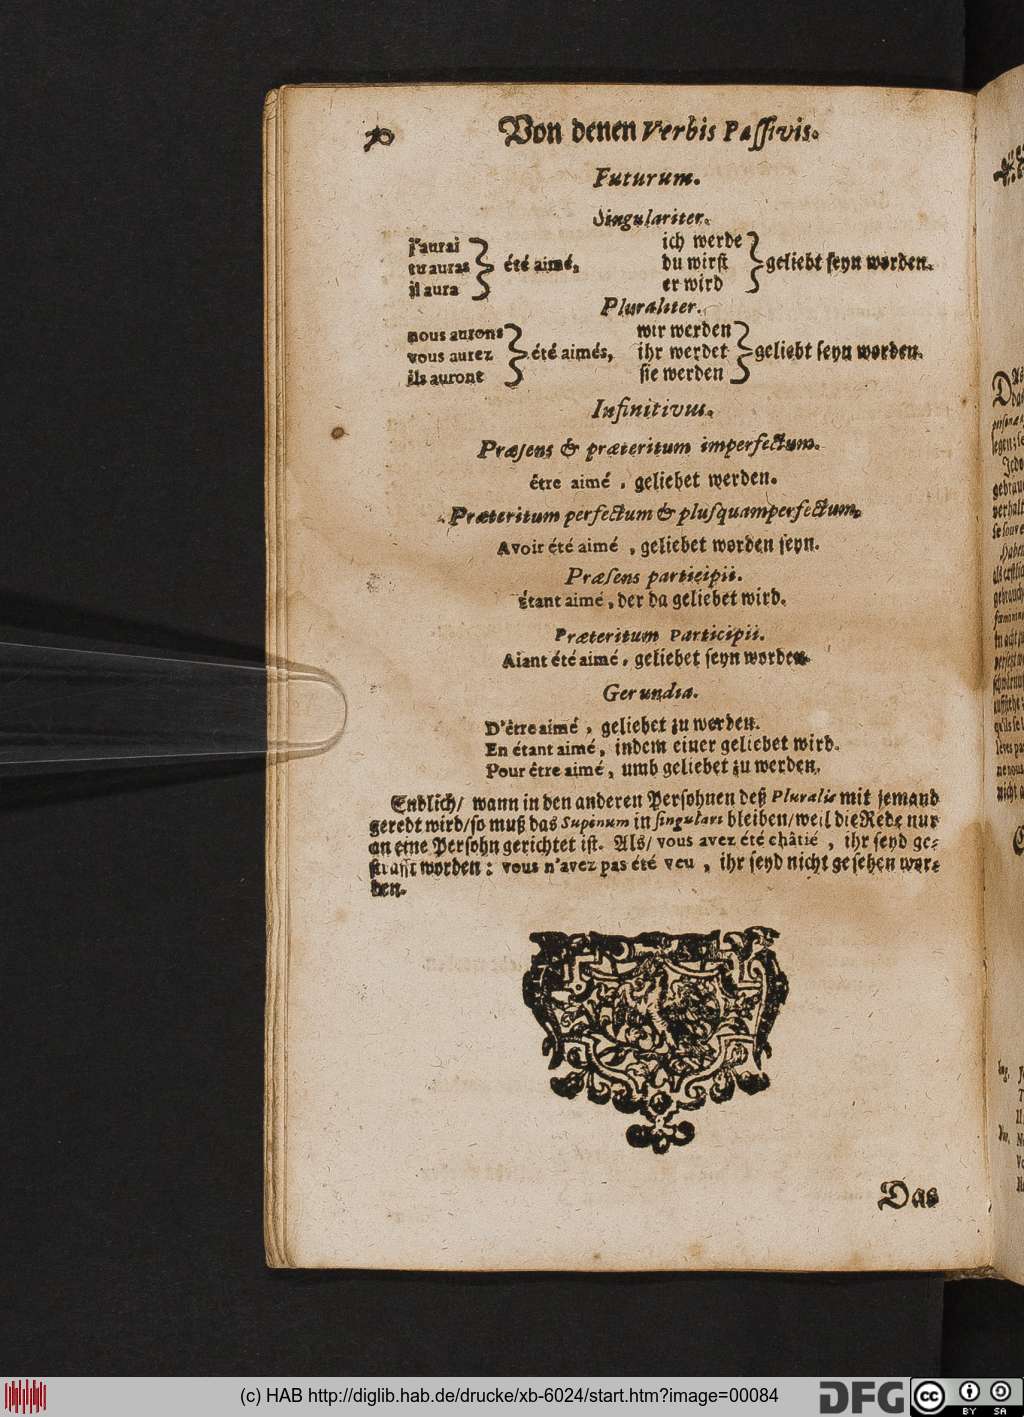 70 Von denen Verbis Passivis.
Futurum.
Singulariter.
j'aurai
tu auras
il aura
été aimé,
ich werde
du wirst
er wird
geliebt seyn worden.
Pluraliter.
nous aurons
vous aurez
ils auront
été aimés,
wir werden
ihr werdet
sie werden
geliebt seyn worden.
Infinitivus.
Præsens & præteritum imperfectum.
être aimé, geliebet werden.
Præteritum perfectum & plusquamperfectum.
Avoir été aimé, geliebet worden seyn.
Præsens participii.
Étant aimé, der da geliebet wird.
Præteritum Participii.
Aiant été aimé, geliebet seyn worden.
Gerundia.
D'être aimé, geliebet zu werden.
En étant aimé, indem einer geliebet wird.
Pour être aimé, umb geliebet zu werden.
Endlich/ wann in den anderen Persohnen deß Pluralis mit jemand
geredt wird/ so muß das Supinum in singulari bleiben/ weil die Rede nur
an eine Persohn gerichtet ist. Als/ vous avez été châtié, ihr seyd ge-
strafft worden: vous n'avez pas été veu, ihr seyd nicht gesehen wor-
den.
Das
(c) HAB http://diglib.hab.de/drucke/xb-6024/start.htm?image=00084
DFG
cc BY SA